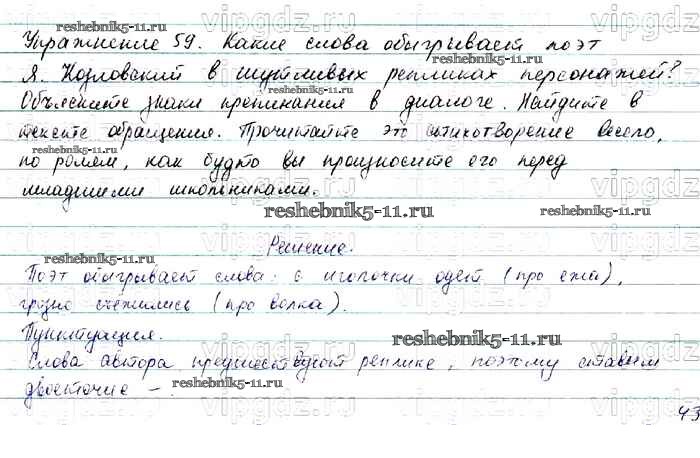 Упражнение 59. Какие слова обыгрывает поэт
Я. Козловский в шутливых репликах персонажей?
Объясните знаки препинания в диалоге. Найдите в
тексте обращения. Прочитайте это стихотворение весело,
по ролям, как будто вы произносите его перед
младшими школьниками.
Решение.
Поэт обыгрывает слова: с иголочки одет (про ежа),
грозно съежились (про волка).
Пунктуация.
Слова автора предшествуют реплике, поэтому ставим
двоеточие –.
43
reshebnik5-11.ru
reshebnik5-11.ru
reshebnik5-11.ru
reshebnik5-11.ru
reshebnik5-11.ru
reshebnik5-11.ru
reshebnik5-11.ru
vipgdz.ru